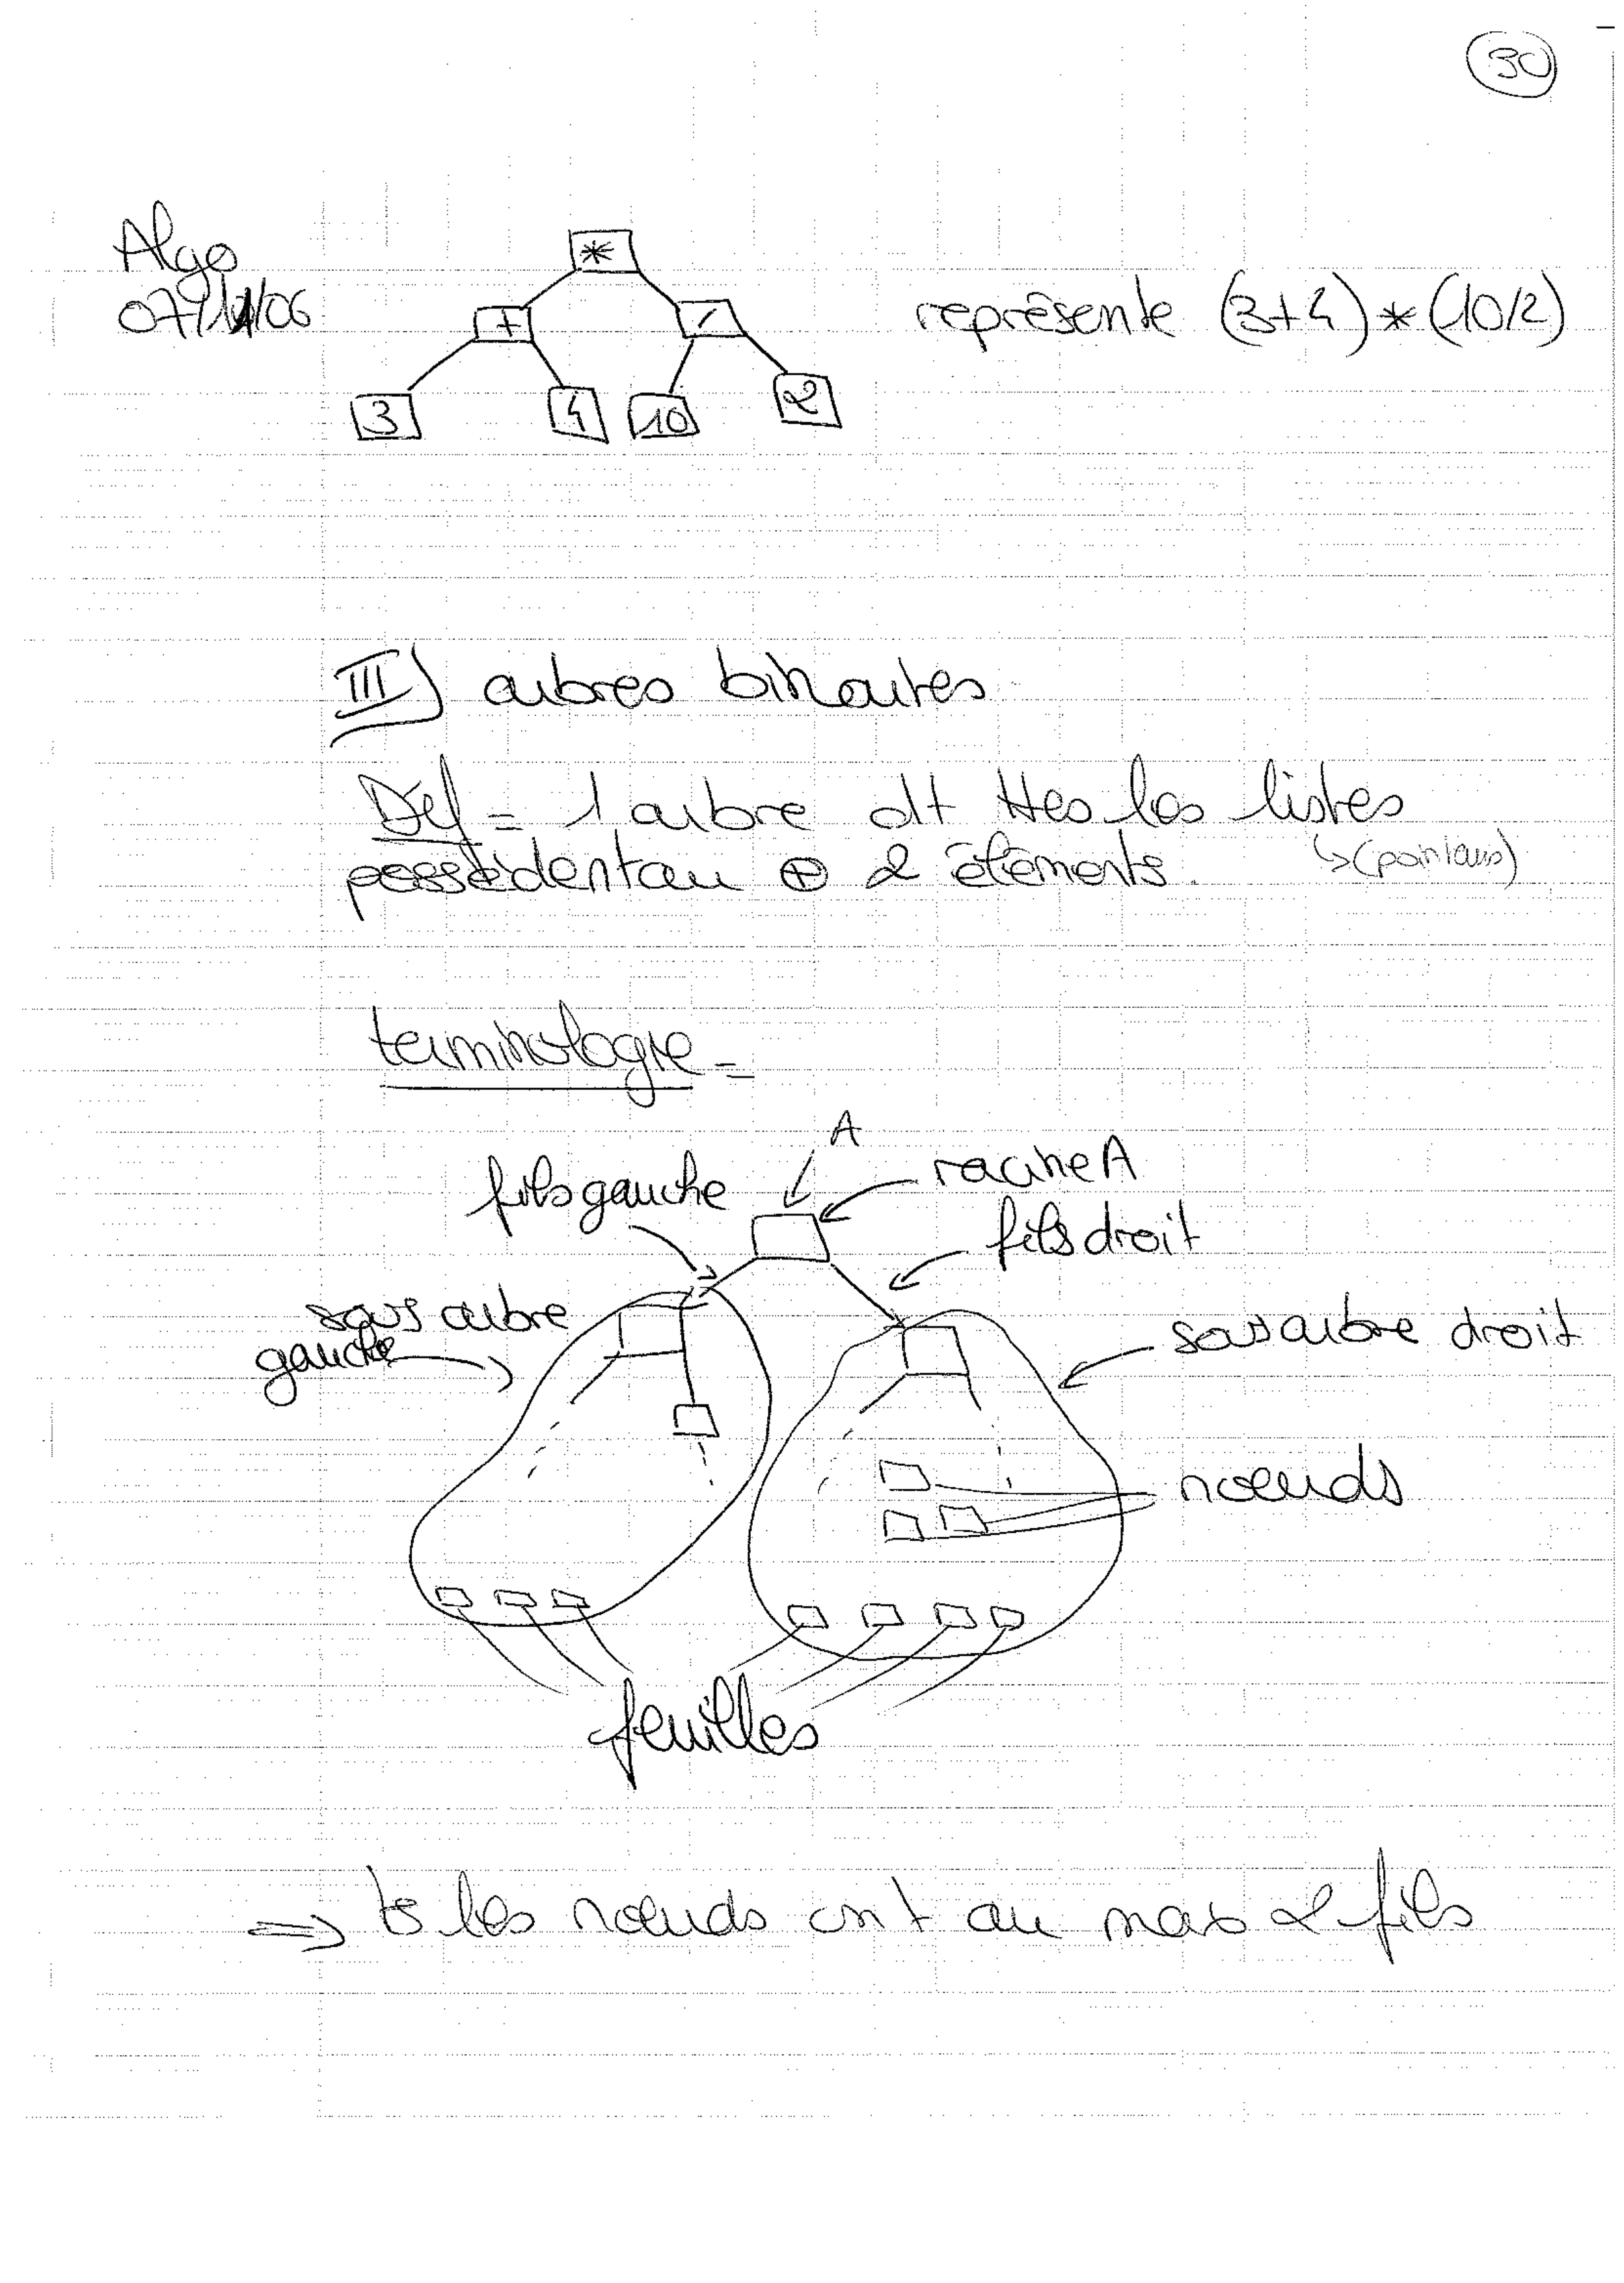 30
Algo
07/11/06
*
+ /
3 4 10 2
représente (3+4)*(10/2)
III) arbres binaires
Déf = 1 arbre dt ttes les listes
↳(pointeurs)
possèdent au ⊕ 2 éléments.
terminologie =
A
racine A
fils gauche
fils droit
sous arbre
gauche
sous arbre droit
noeuds
feuilles
=> ts les noeuds ont au max 2 fils